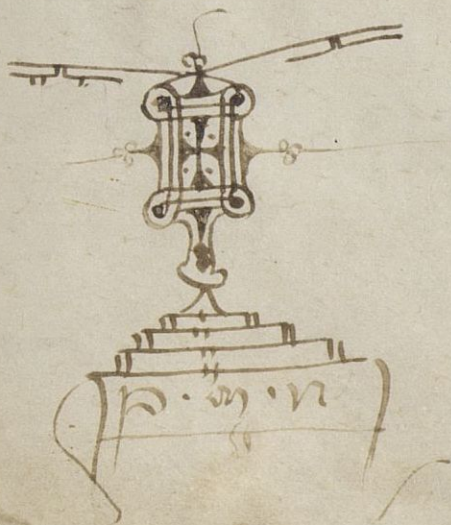 P · m · n